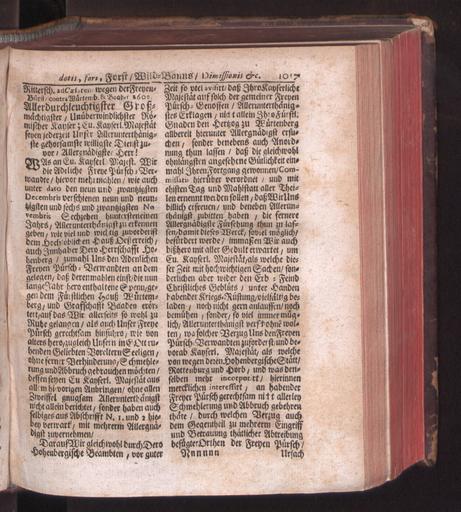 dotis, fori, Forst / Wild-Banns / Dimissionis &c. 1017
Rittersch. ad Cæsarem wegen der Freyen
Pürs. contra Würtemb. & Hochb. 1605.
Allerdurchleuchtigster Groß-
mächtigster / Unüberwindlichster Rö-
mischer Kayser; Eu. Kayserl. Majestät
seyen jederzeit Unser Allerunterthänig-
ste gehorsamste willigste Dienst zu-
vor / Allergnädigste: Herr!
WAs an Eu. Kayserl. Mayst. Wir
die Adeliche Freye Pürsch-Ver-
wandte / hievor mehrmahlen / wie auch
unter dato den neun und zwantzigsten
Decembris verschienen neun und neun-
tzigsten und sechs und zwantzigsten No-
vembris Sechzehen hunterstenein
Jahrs / Allerunterthänigst zu erkennen
geben / wie viel und wichtig zuvorderist
dem Hochlöblichen Hauß Oesterreich /
auch Innhaber Dero Herrschafft Ho-
henberg / zumahl Uns den Adenlichen
Freyen Pürsch-Verwandten an dem
gelegen / daß dermahlen einst die nun
lange Jahr hero enthaltene Spenn / ge-
gen dem Fürstlichen Hauß Würtem-
berg / und Graffschafft Baaden erör-
tert / auf das Wir allerseits so wohl zu
Ruhe gelangen / als auch Unser Freye
Pürsch gerechtsam hinführo / wie von
alters hero / zugleich Unsern in GOtt ru-
henden Geliebten Voreltern Seeligen /
ohne ferner Verhinderung / Schmehle-
rung und Abbruch gebrauchen möchten /
dessen seyen Eu. Kayserl. Majestät aus
all m hi vorigen Anbringen / ohne allen
Zweiffel gnugsam Allerunterthänigst
nicht allein berichtet / sonder haben auch
selbiges aus Abschrifft N. 1. und 2 hie-
bey verwart / mit mehrerm Allergnä-
digst zuvernehmen /
Darauf Wir gleichwohl durch Dero
Hohenbergische Beambten / vor guter
Zeit so viel avisirt / daß Ihro Kayserliche
Majestät auf solch der gemeiner Freyen
Pürsch-Genossen / Allerunterthänig-
stes Erklagen / nit allein Ihro Fürstl.
Gnaden den Hertzog zu Würtenberg
allbereit hierunter Allergnädigst ersu-
chet / sonder benebens auch Anord-
nung thun lassen / daß die gleichwohl
ohnlängsten angesehene Gütlichkeit ein-
mahl Ihren Fortgang gewonnen / Com-
missarii hierüber verordnet / und mit
ehisten Tag und Mahlstatt aller Thei-
len ernennt werden sollen / daß Wir Uns
billich erfreuen / und beneben Allerun-
thänigst zubitten haben / die fernere
Allergnädigste Fürsehung thun zu las-
sen / damit dieses Werck / so viel möglich /
befördert werde / immassen Wir auch
bißhero mit aller Gedult erwartet / um
Eu. Kayserl. Majestät / als welche die-
ser Zeit mit hochwichtigen Sachen / son-
derlichen aber wider den Erb-Feind
Christliches Geblüts / unter Handen
habender Kriegs-Rüstung / vielfältig be-
laden / noch nicht gern anlauffen / noch
bemühen / sonder / so viel immer müg-
lich / Allerunterthänigst verschonen woll-
ten / wa solcher Verzug Uns den Freyen
Pürsch-Verwandten zuforderist und be-
vorab Kayserl. Majestät / als welche
von wegen deren Hohenbergische Stätt /
Rottenburg und Horb / und was den-
selben mehr incorporirt / hierinnen
mercklichen interessirt / an habender
Freyer Pürsch gerechtsam nitt allerley
Schmehlerung und Abbruch gebehren
thäte / durch welchen Verzug auch
dem Gegentheil zu mehrerm Eingriff
und Betrauung thätlicher Abtreibung
besügter Orthen der Freyen Pürsch /
Nnnnnn Ursach